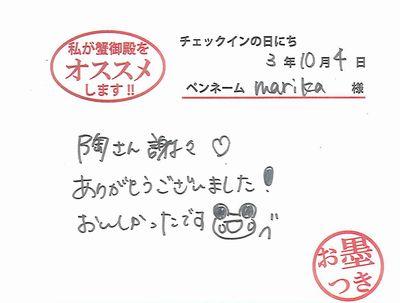 私が蟹御殿を
オススメ
します!!
チェックインの日にち
3年10月4日
ペンネーム marika 様
陶さん 謝々♡
ありがとうございました!
おいしかったです
お墨
つき